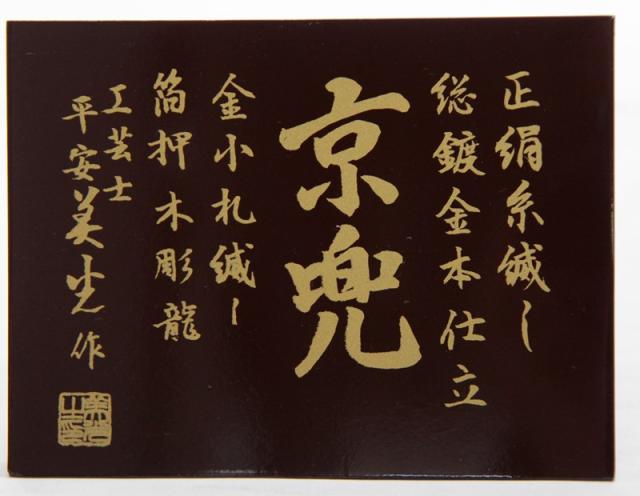 正絹糸縅し
総鍍金本仕立
京兜
金小札縅し
箔押木彫龍
工芸士
平安美光作